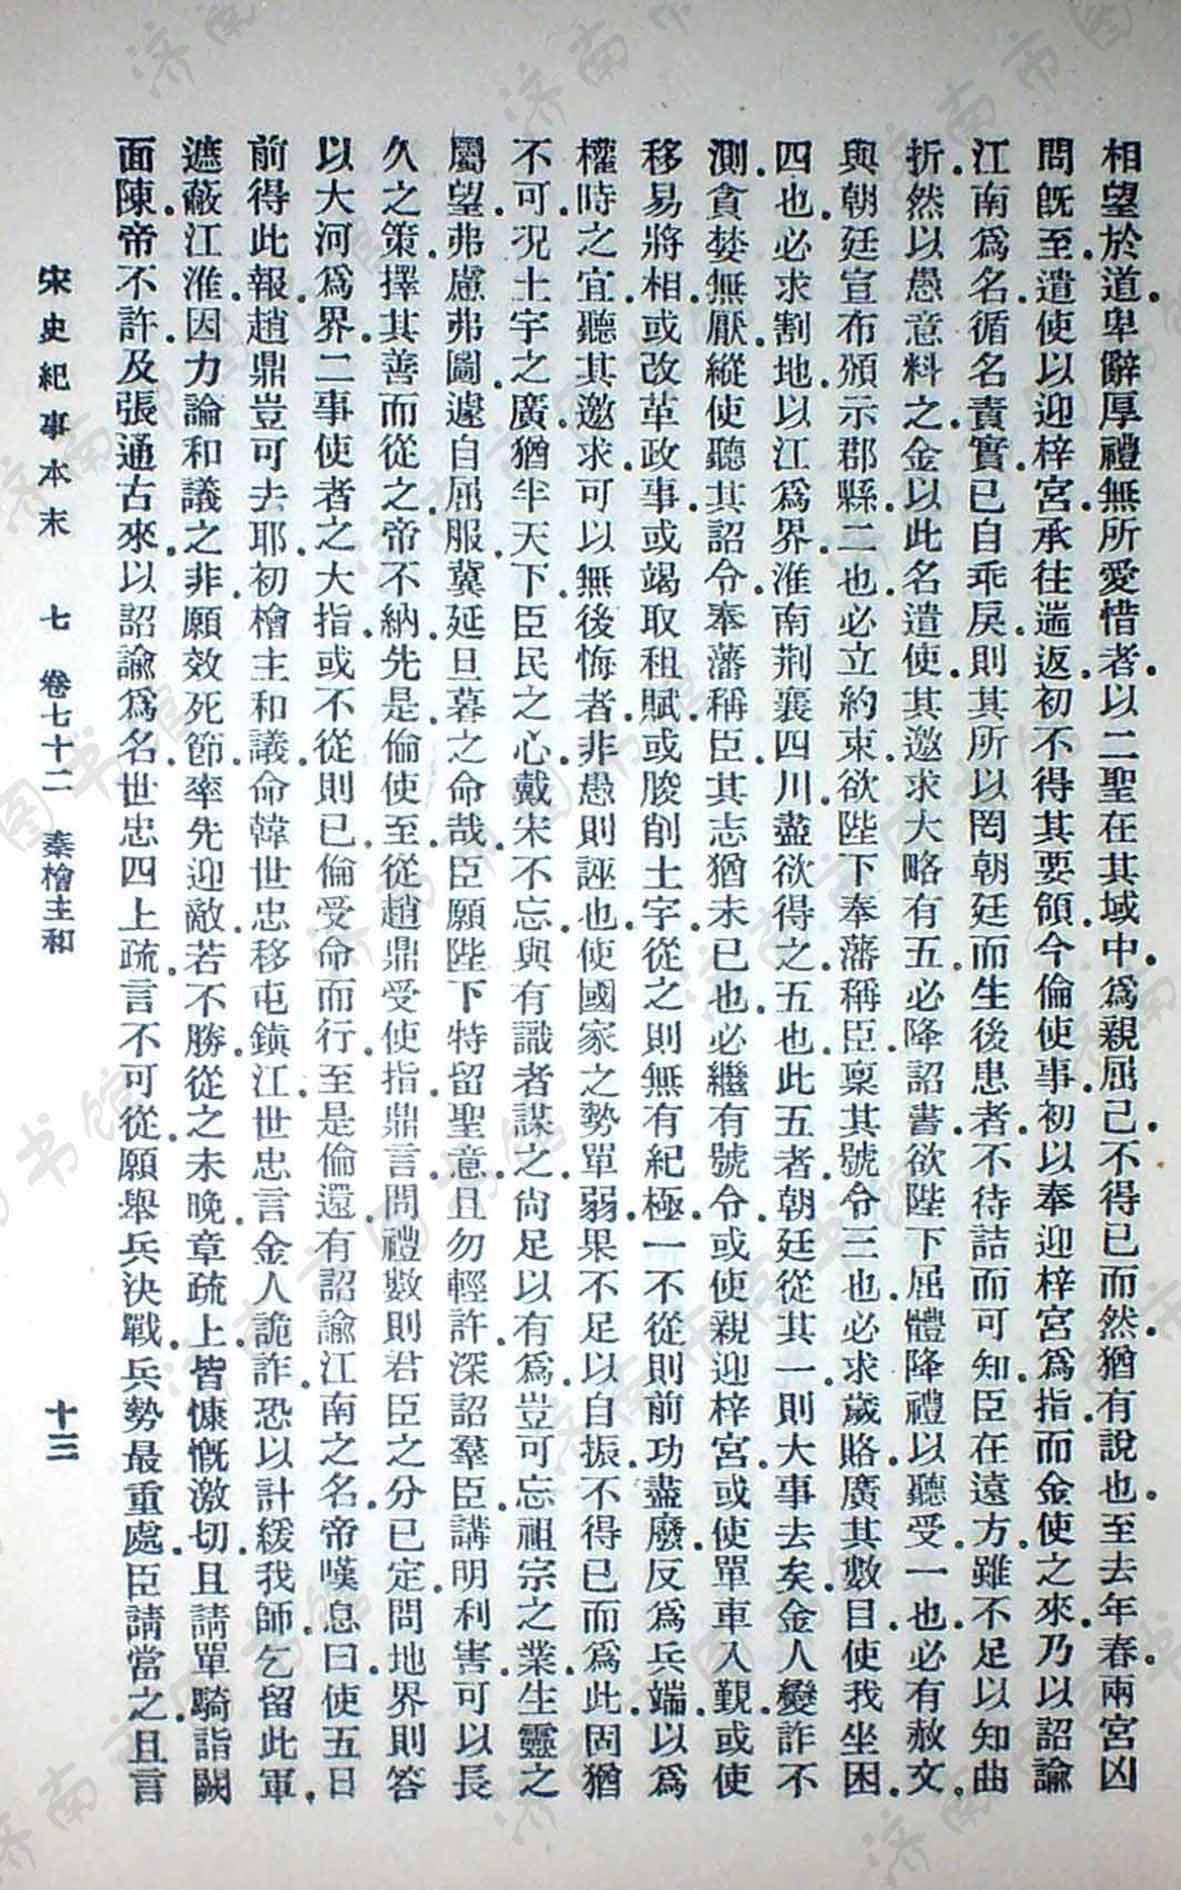 相望於道卑辭厚禮無所愛惜者以二聖在其域中爲親屈己不得已而然猶有說也至去年春兩宮凶
問既至遣使以迎梓宮承往遄返初不得其要領今倫使事初以奉迎梓宮爲指而金使之來乃以詔諭
江南爲名循名責實已自乖戾則其所以罔朝廷而生後患者不待詰而可知臣在遠方雖不足以知曲
折然以愚意料之金以此名遣使其邀求大略有五必降詔書欲陛下屈體降禮以聽受一也必有赦文
與朝廷宣布頒示郡縣二也必立約束欲陛下奉藩稱臣稟其號令三也必求歲賂廣其數目使我坐困
四也必求割地以江爲界淮南荆襄四川盡欲得之五也此五者朝廷從其一則大事去矣金人變詐不
測貪婪無厭縱使聽其詔令奉藩稱臣其志猶未已也必繼有號令或使親迎梓宮或使單車入覲或使
移易將相或改革政事或竭取租賦或朘削土宇從之則無有紀極一不從則前功盡廢反爲兵端以爲
權時之宜聽其邀求可以無後悔者非愚則誣也使國家之勢單弱果不足以自振不得已而爲此固猶
不可況土宇之廣猶半天下臣民之心戴宋不忘與有識者謀之尙足以有爲豈可忘祖宗之業生靈之
屬望弗慮弗圖遽自屈服冀延旦暮之命哉臣願陛下特留聖意且勿輕許深詔羣臣講明利害可以長
久之策擇其善而從之帝不納先是倫使至從趙鼎受使指鼎言問禮數則君臣之分已定問地界則答
以大河爲界二事使者之大指或不從則已倫受命而行至是倫還有詔諭江南之名帝嘆息曰使五日
前得此報趙鼎豈可去耶初檜主和議命韓世忠移屯鎮江世忠言金人詭詐恐以計緩我師乞留此軍
遮蔽江淮因力論和議之非願效死節率先迎敵若不勝從之未晚章疏上皆慷慨激切且請單騎詣闕
面陳帝不許及張通古來以詔諭爲名世忠四上疏言不可從願舉兵決戰兵勢最重處臣請當之且言
宋史紀事本末 七 卷七十二 秦檜主和 十三
济南市图书馆